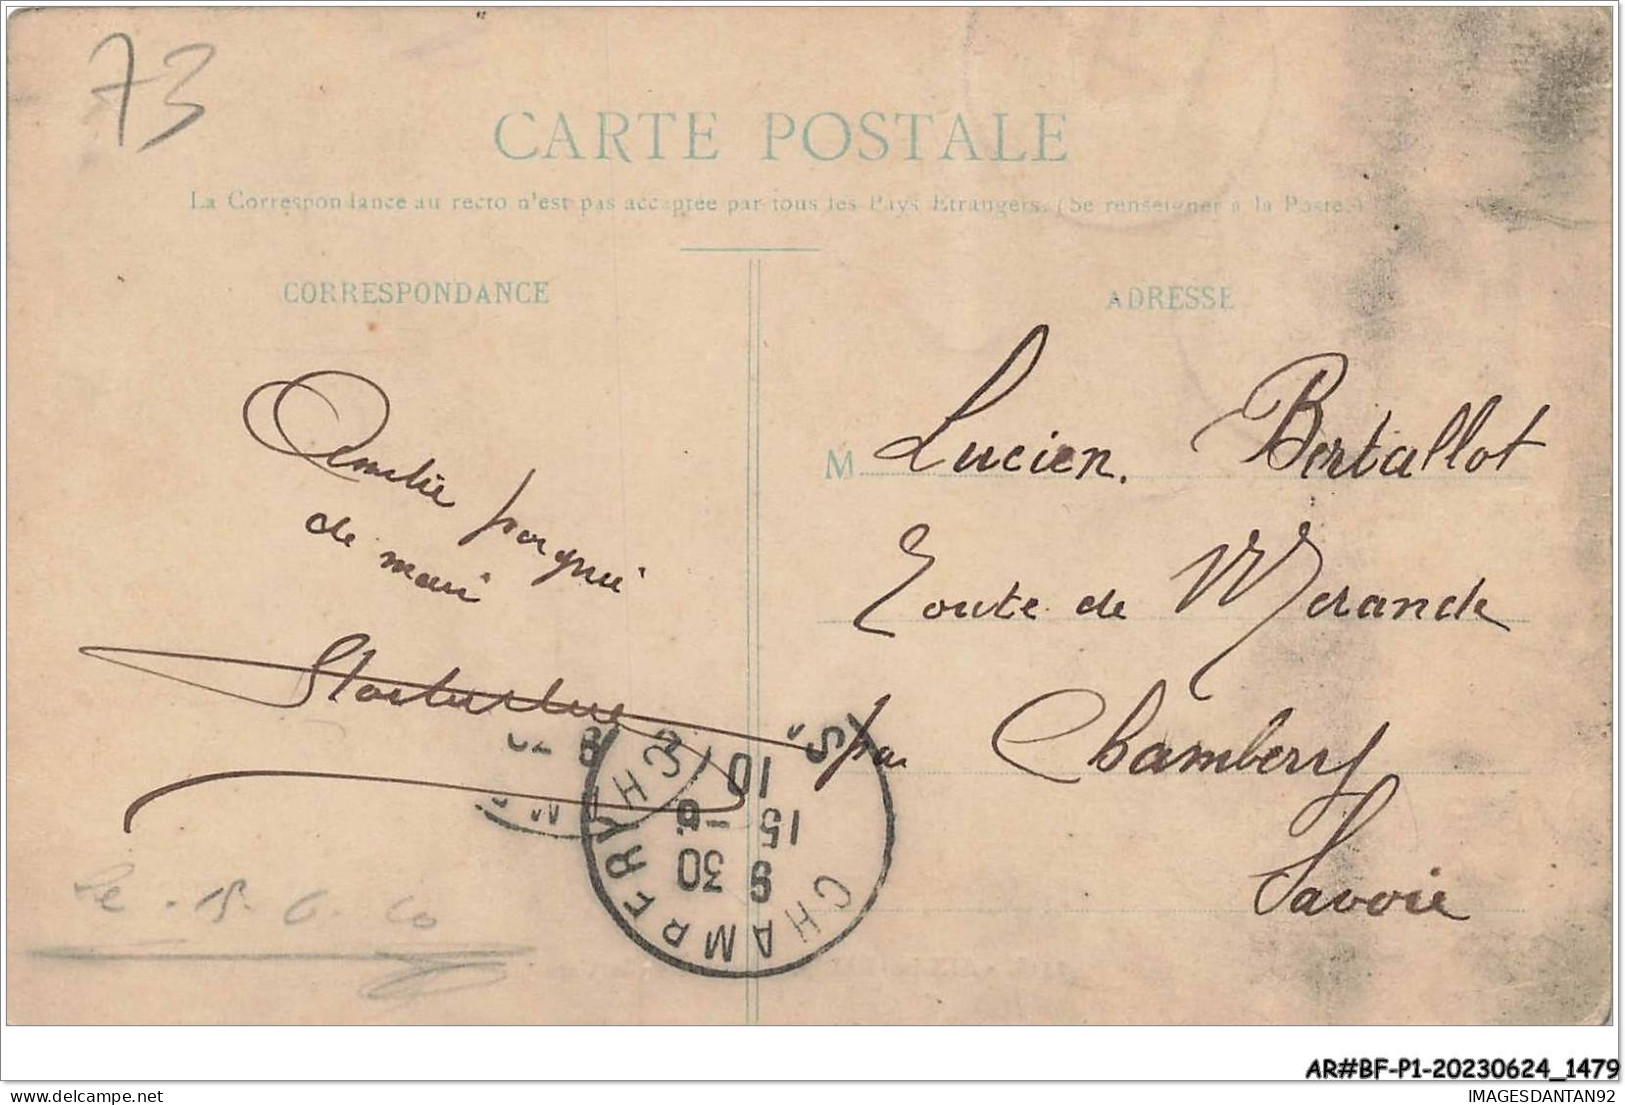 73
CARTE POSTALE
La Correspondance au recto n'est pas acceptée par tous les Pays Etrangers. (Se renseigner à la Poste.)
CORRESPONDANCE
ADRESSE
Amitié
de
M Lucien. Bertallot
Route de Merande
par Chambery
Savoie
CHAMBERY
9 30
15 - 6
10
Le 15. 6. 10
AR#BF-P1-20230624_1479
IMAGESDANTAN92